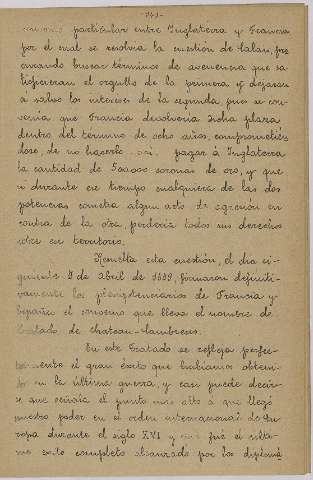 -243-
particular entre Inglaterra y Francia
por el cual se resolvia la cuestion de Calais, pro
curando buscar términos de avenencia que sa
tisficieran el orgullo de la primera, y dejasen
a salvo los intereses de la segunda, pues se con-
venia que Francia devolveria dicha plaza
dentro del termino de ocho años, comprometien
dose, de no hacerlo asi pagar à Inglaterra
la cantidad de 500000 coronas de oro, y que
si durante ese tiempo cualquiera de las dos
potencias cometia algun acto de agresión en
contra de la otra perderia todos sus derechos
sobre ese territorio.
Resuelta esta cuestión, el dia si-
guiente 3 de Abril de 1559, firmaron definiti-
vamente los plenipotenciarios de Francia y
España el convenio que lleva el nombre de
tratado de Chateau-Cambresis.
En este tratado se refleja perfec-
tamente el gran éxito que habiamos obteni-
do en la última guerra, y casi puede decir-
se que señala el punto mas alto á que llegó
nuestro poder en el orden internacional de Eu-
ropa durante el siglo XVI y fué el ulti-
mo exito completo alcanzado por los diplomá